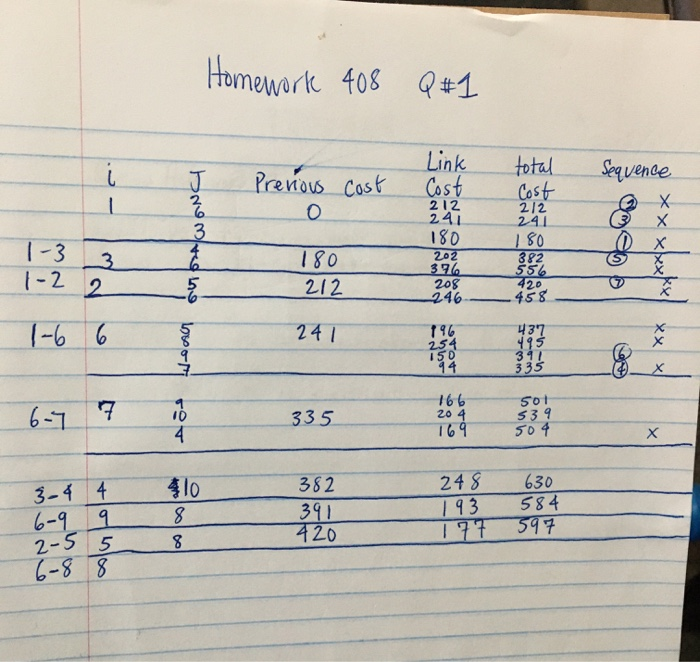 Homework 408 Q#1
Link total
i J Previous Cost Cost Cost Sequence
1 2 0 212 212 2 x
6 241 241 3 x
3 180 180 1 x
1-3 3 4 180 202 382 5 x
6 376 556 x
1-2 2 5 212 208 420 7 x
6 246 458 x
1-6 6 5 241 196 437 x
8 254 495 x
9 150 391 6
7 94 335 4 x
6-7 7 9 335 166 501
10 204 539
4 169 504 x
3-4 4 10 382 248 630
6-9 9 8 391 193 584
2-5 5 8 420 177 597
6-8 8